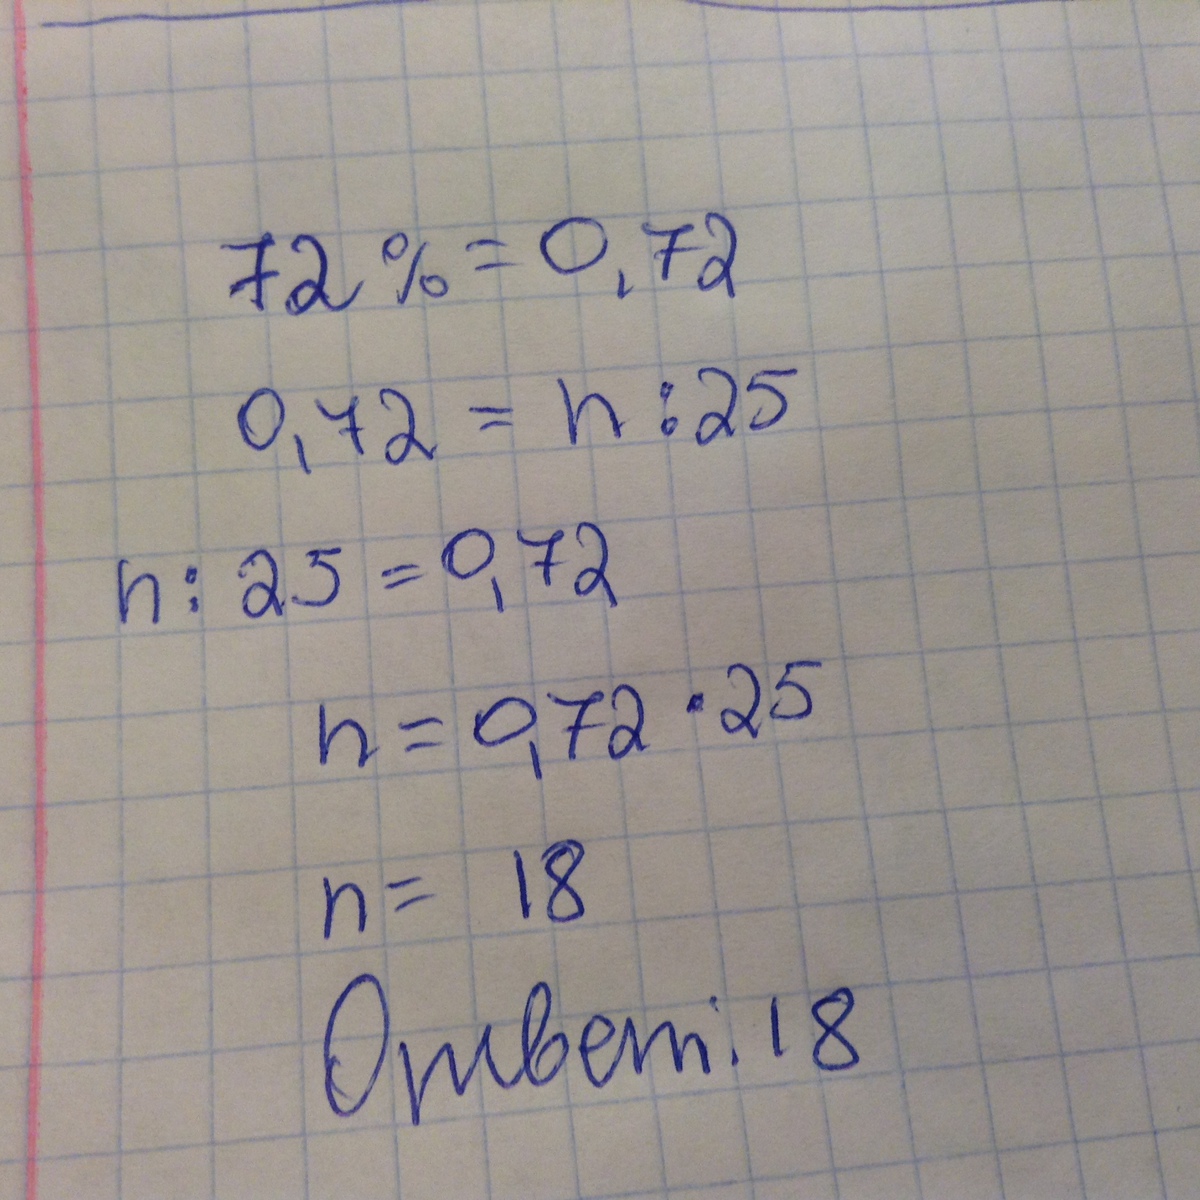 72 % = 0,72
0,72 = n : 25
n : 25 = 0,72
n = 0,72 · 25
n = 18
Ответ: 18